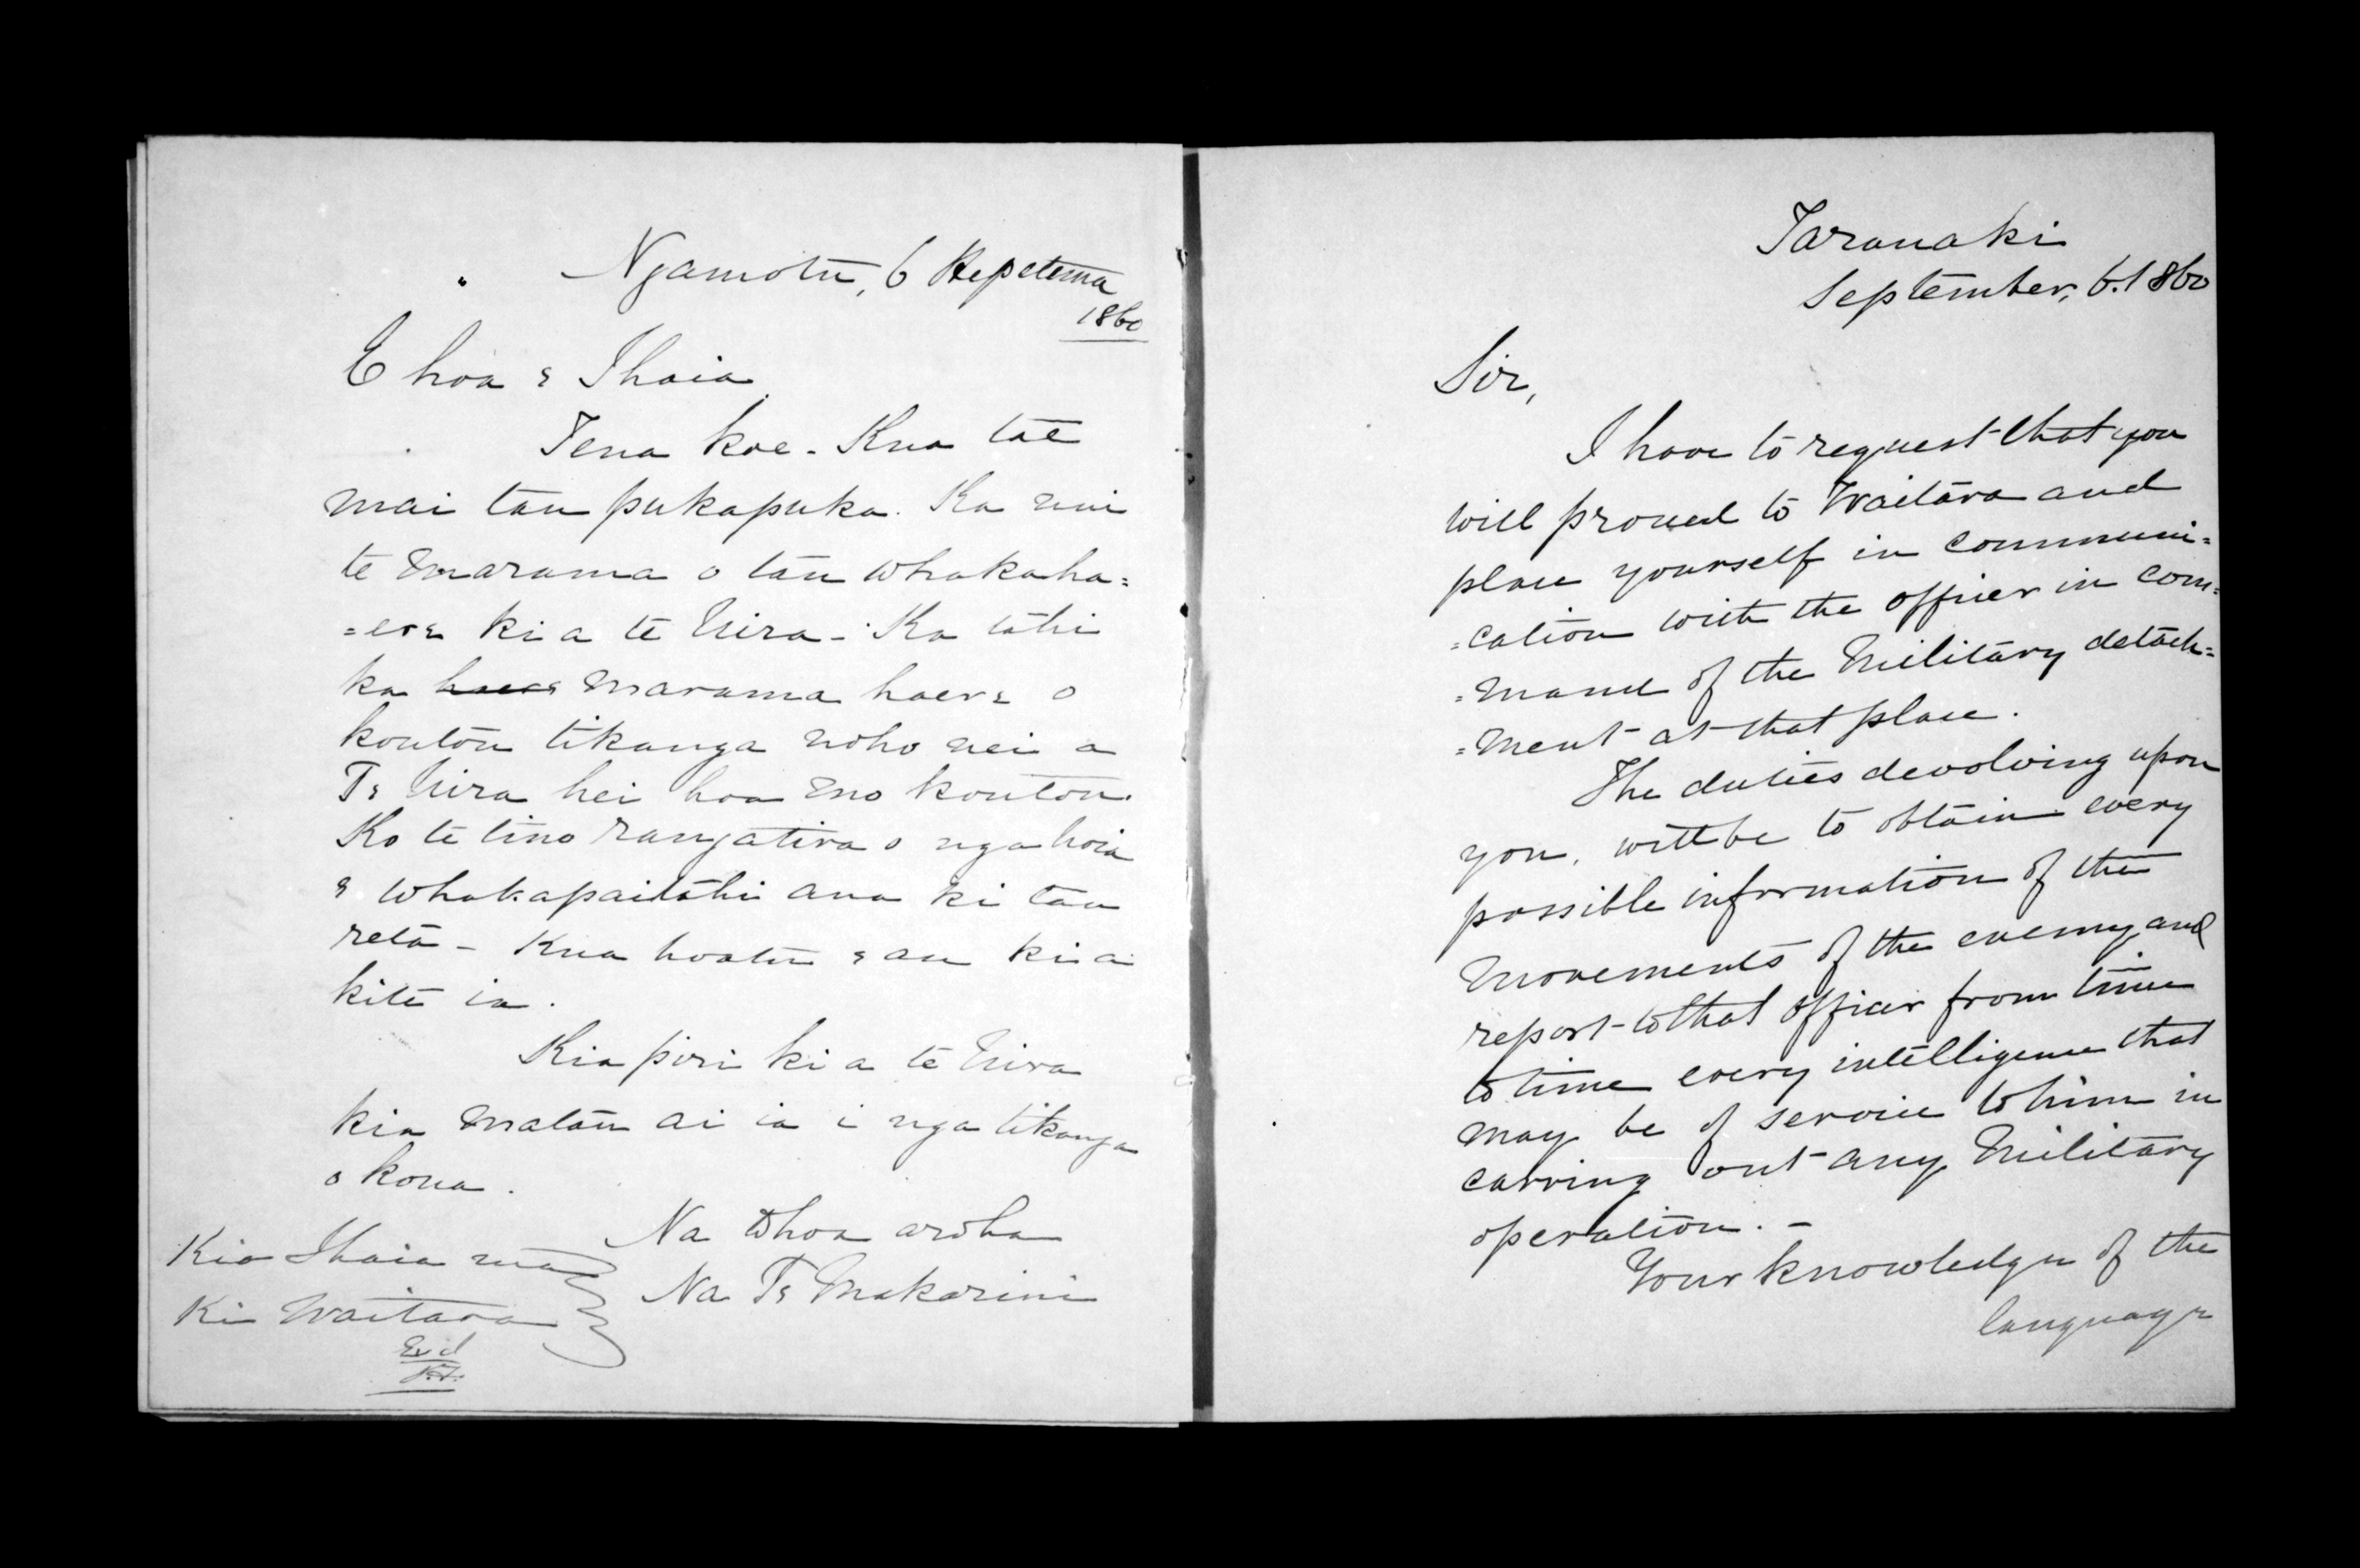 Ngamotu, 6 Hepetema
1860
E hoa e Ihaia
Tena koe. Kua tae
mai tau pukapuka. Ka nui
te marama o tau whakaha=
=ere ki a te Mira - Ka tahi
ka haere marama haere o
koutou tikanga noho nei a
Te Mira hei hoa mo koutou.
Ko te tino rangatira o nga hoia
e whakapai tahi ana ki tau
reta - Kua hoatu e au kia
kite ia.
Kia piri ki a te Mira
kia matau ai ia i nga tikanga
o kona.
Na to hoa aroha
Na Te Makarini
Kia Ihaia ma
Ki Waitara
Sir,
Taranaki
September, 6. 1860
I have to request that you
will proceed to Waitara and
place yourself in communi=
=cation with the officer in com=
=mand of the Military detach=
=ment at that place.
The duties devolving upon
you, will be to obtain every
possible information of the
movements of the enemy, and
report to that officer from time
to time every intelligence that
may be of service to him in
carring out any Military
operation. -
Your knowledge of the
language